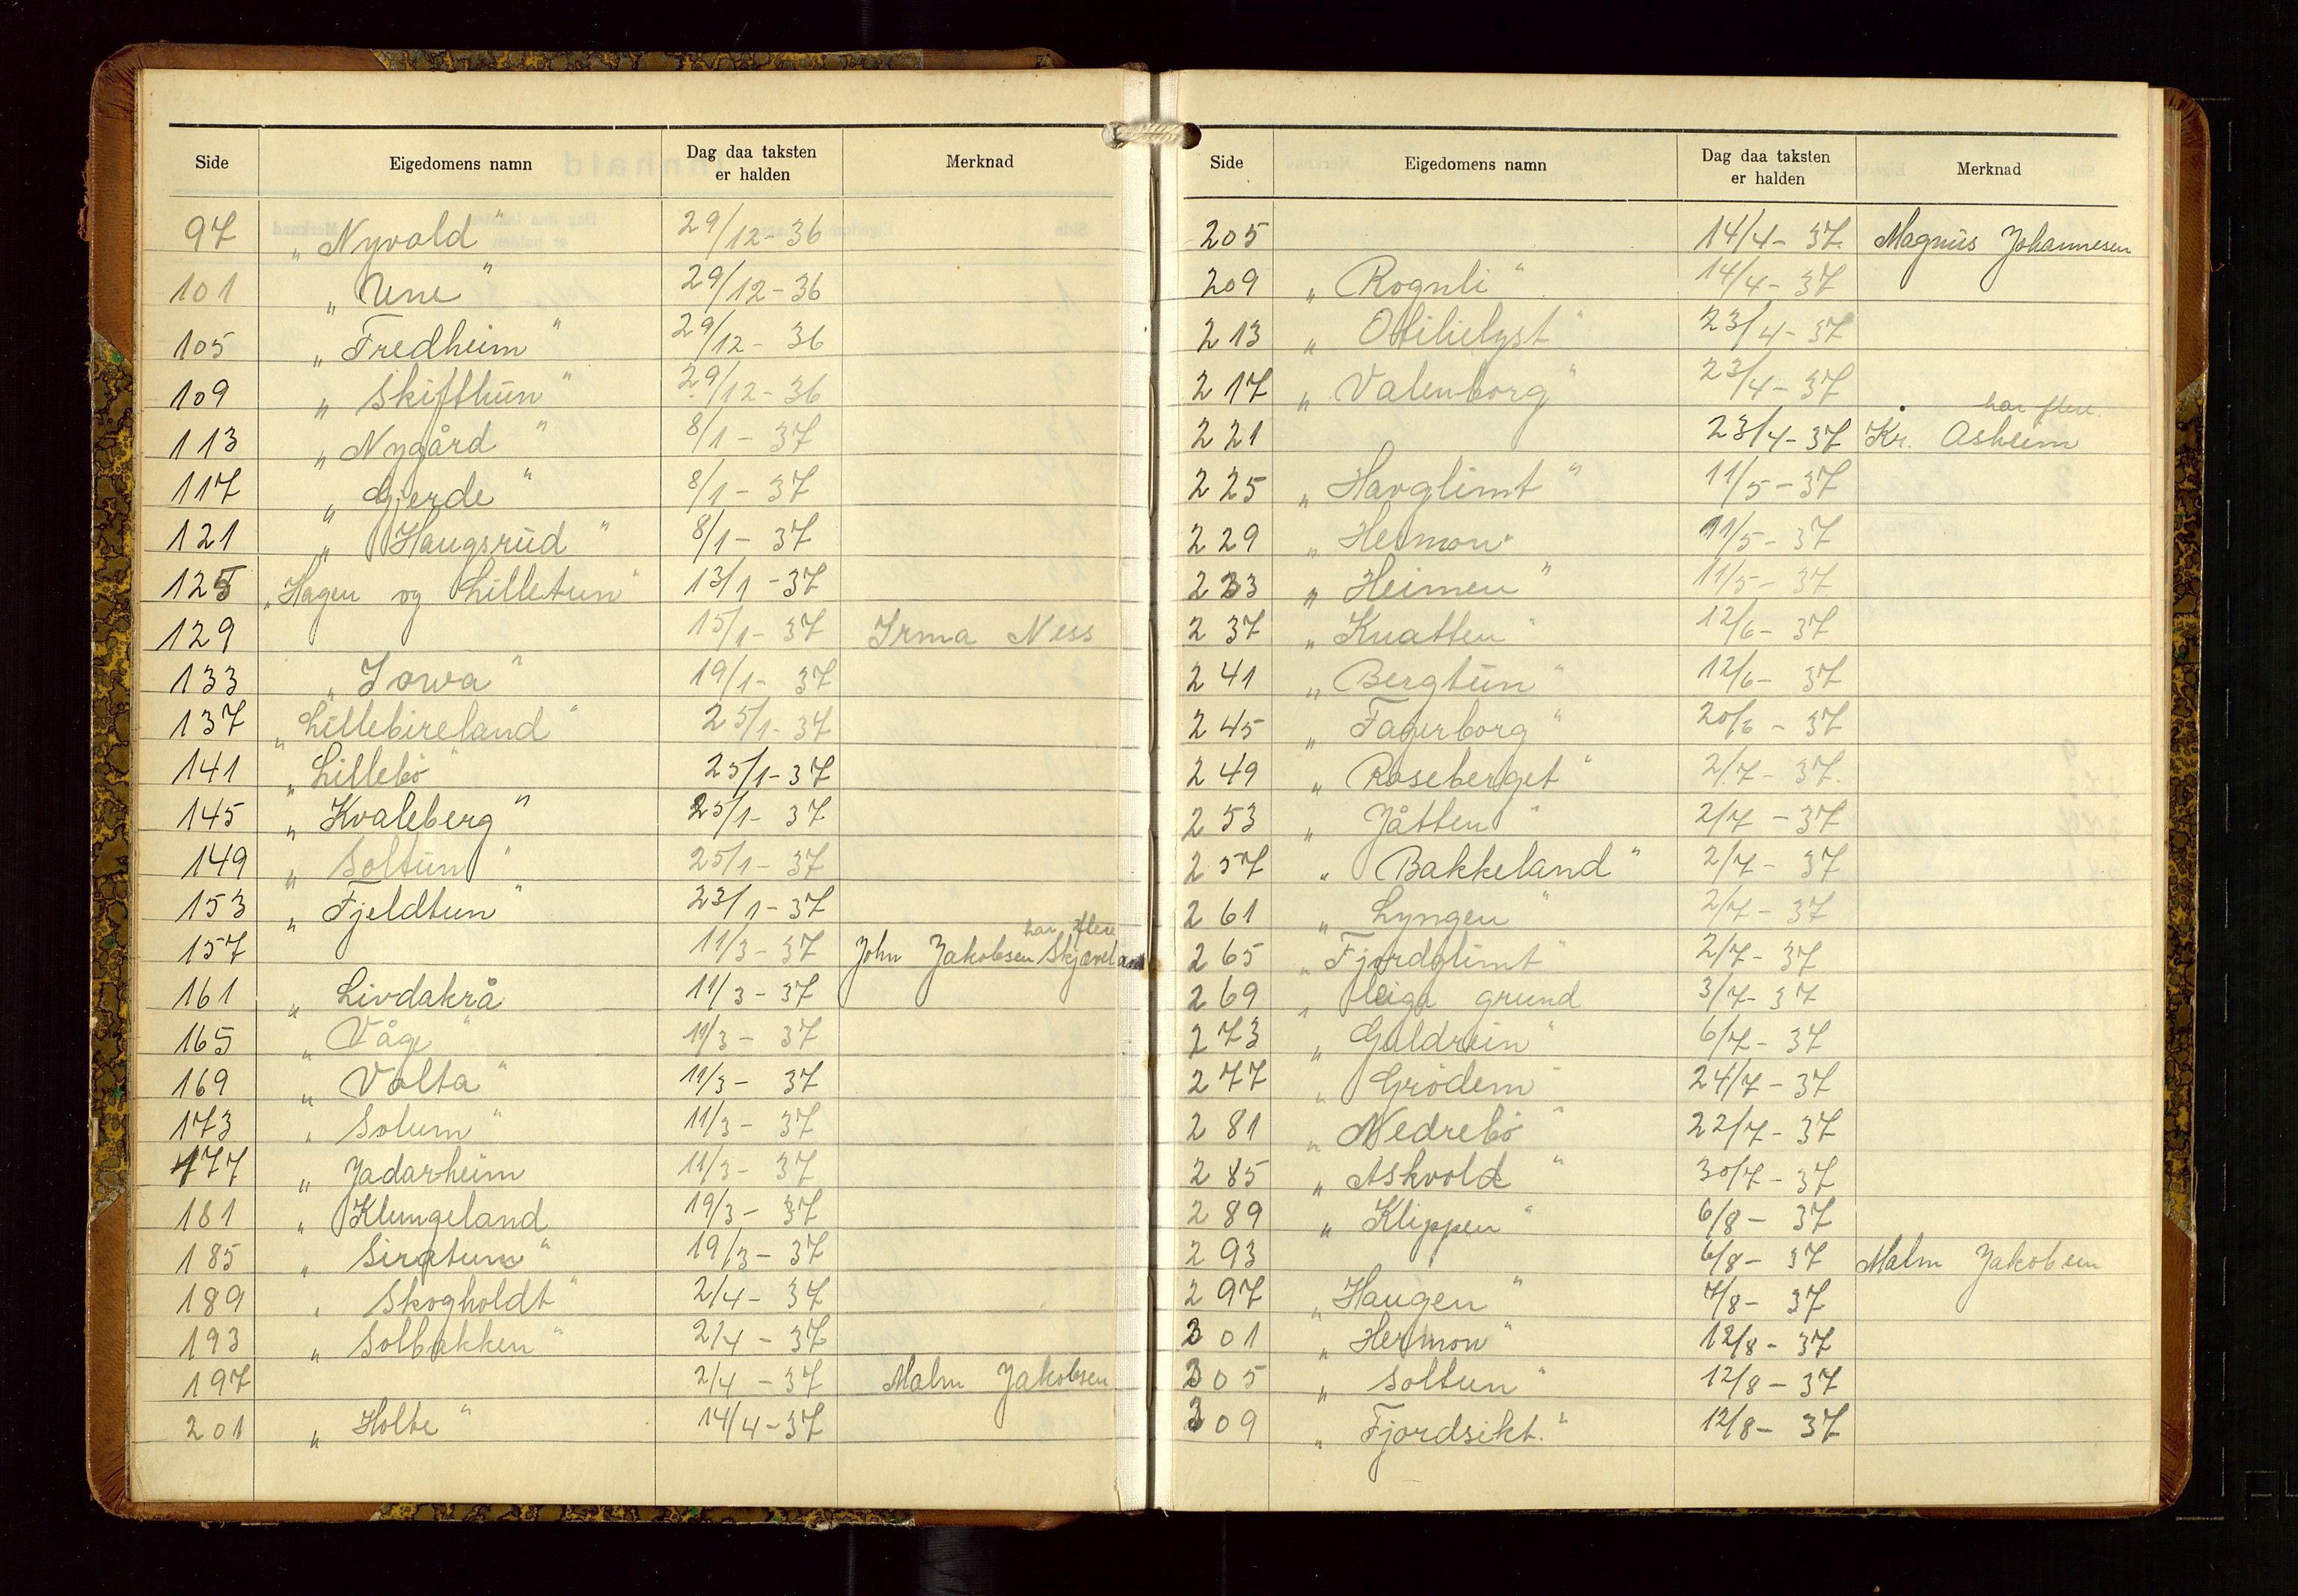 Side Eigedomens namn Dag daa taksten er halden Merknad
97 „Nyvold" 29/12-36
101 „Une" 29/12-36
105 „Fredheim" 29/12-36
109 „Skifthun" 29/12-36
113 „Nygård" 8/1-37
117 „Gjerde" 8/1-37
121 „Haugsrud" 8/1-37
125 „Hagen og Lilletun" 13/1-37
129 15/1-37 Irma Ness
133 „Iowa" 19/1-37
137 „Lillebireland" 25/1-37
141 „Lillebö" 25/1-37
145 „Kvaleberg" 25/1-37
149 „Soltun" 25/1-37
153 „Fjeldtun" 23/1-37
har flere
157 11/3-37 John Jakobsen Skjæveland
161 „Livdakrå 11/3-37
165 „Våge" 11/3-37
169 „Volta" 11/3-37
173 „Solum" 11/3-37
177 „Jadarheim 11/3-37
181 „Klungeland 19/3-37
185 „Siratun" 19/3-37
189 „Skogholdt" 2/4-37
193 „Solbakken" 2/4-37
197 2/4-37 Malm Jakobsen
201 „Holte" 14/4-37
Side Eigedomens namn Dag daa taksten er halden Merknad
205 14/4-37. Magnus Johannesen
209 „Rognli" 14/4-37
213 „Otilielyst" 23/4-37
217 „Valenborg" 23/4-37
har flere
221 23/4-37 Kr. Åsheim
225 „Havglimt" 11/5-37
229 „Hermon" 11/5-37
233 „Heimen" 11/5-37
237 „Knatten" 12/6-37
241 „Bergtun" 12/6-37
245 „Fagerborg" 20/6-37
249 „Roseberget" 2/7-37.
253 „Jåtten" 2/7-37
257 „Bakkeland" 2/7-37
261 „Lyngen" 2/7-37
265 „Fjordglimt" 2/7-37
269 „leiga grund 3/7-37
273 „Galdrein" 6/7-37
277 „Grödem" 24/7-37
281 „Nedrebö" 22/7-37
285 „Askvold" 30/7-37
289 „Klippen" 6/8-37
293 6/8-37 Malm Jakobsen
297 „Haugen" 7/8-37
301 „Hermon" 12/8-37
305 „Soltun" 12/8-37
309 „Fjordsikt." 12/8-37